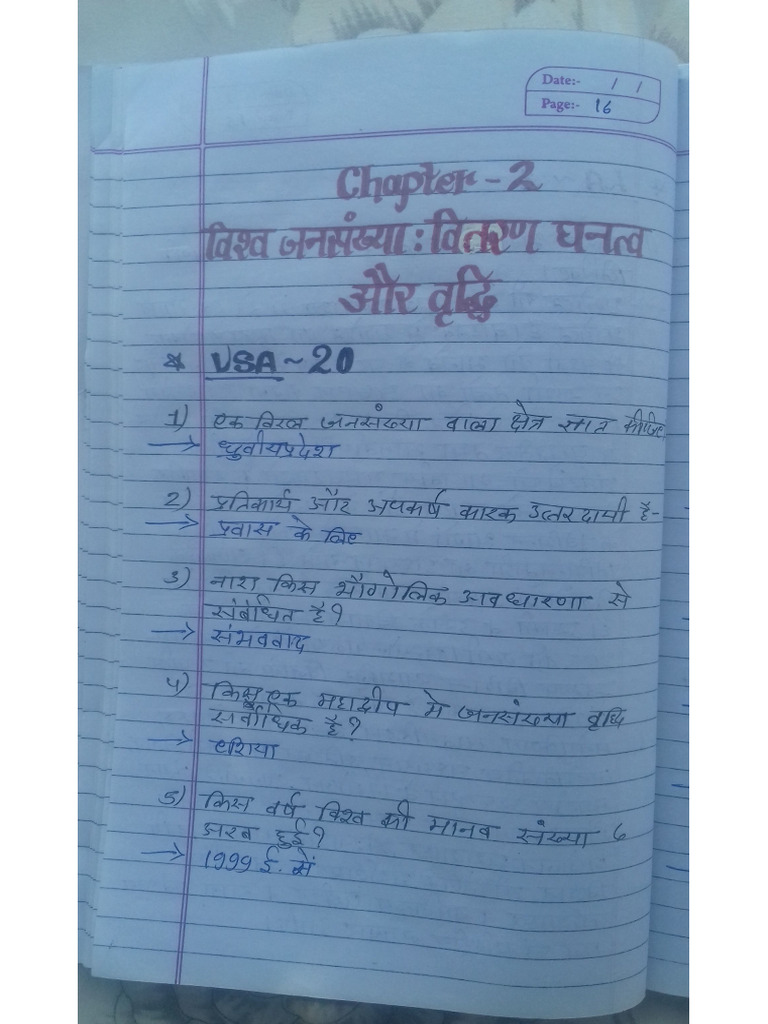 Date:- / /
Page:- 16
Chapter - 2
विश्व जनसंख्या : वितरण घनत्व
और वृद्धि
* VSA ~ 20
1) एक विरल जनसंख्या वाला क्षेत्र ज्ञात कीजिए
→ ध्रुवीयप्रदेश
2) प्रतिकार्य और अपकर्ष कारक उत्तरदायी है-
→ प्रवास के लिए
3) नारा किस भौगोलिक अवधारणा से
संबंधित है?
→ संभववाद
4) किस एक महाद्वीप मे जनसंख्या वृद्धि
सर्वाधिक है?
→ एशिया
5) किस वर्ष विश्व की मानव संख्या 6
अरब हुई?
→ 1999 ई. में